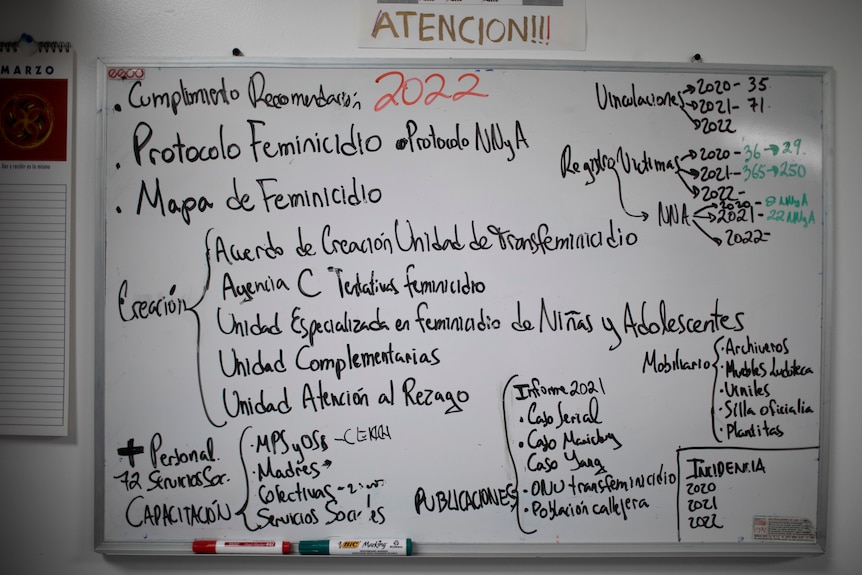 ¡ATENCION!!!
MARZO
· Cumplimiento Recomendación 2022
· Protocolo Feminicidio • Protocolo NNyA
· Mapa de Feminicidio
Creación
Acuerdo de Creación Unidad de Transfeminicidio
Agencia C Tentativas feminicidio
Unidad Especializada en feminicidio de Niñas y Adolescentes
Unidad Complementarias
Unidad Atención al Rezago
Vinculaciones
2020- 35
2021- 71
2022
Registro Víctimas
2020- 36 → 29
2021- 365 → 250
2022-
NNA
2020- 8 NNyA
2021- 22 NNyA
2022-
Mobiliario
· Archiveros
· Muebles Ludoteca
· Viniles
· Silla oficialia
· Plantitas
+ Personal.
12 Servicio Soc.
CAPACITACIÓN
· MPS y OSB
· Madres
Colectivas
Servicios Sociales
PUBLICACIONES
Informe 2021
· Caso Serial
· Caso
Caso Yang
· ONU transfeminicidio
· Población callejera
INCIDENCIA
2020
2021
2022
BIC Marking